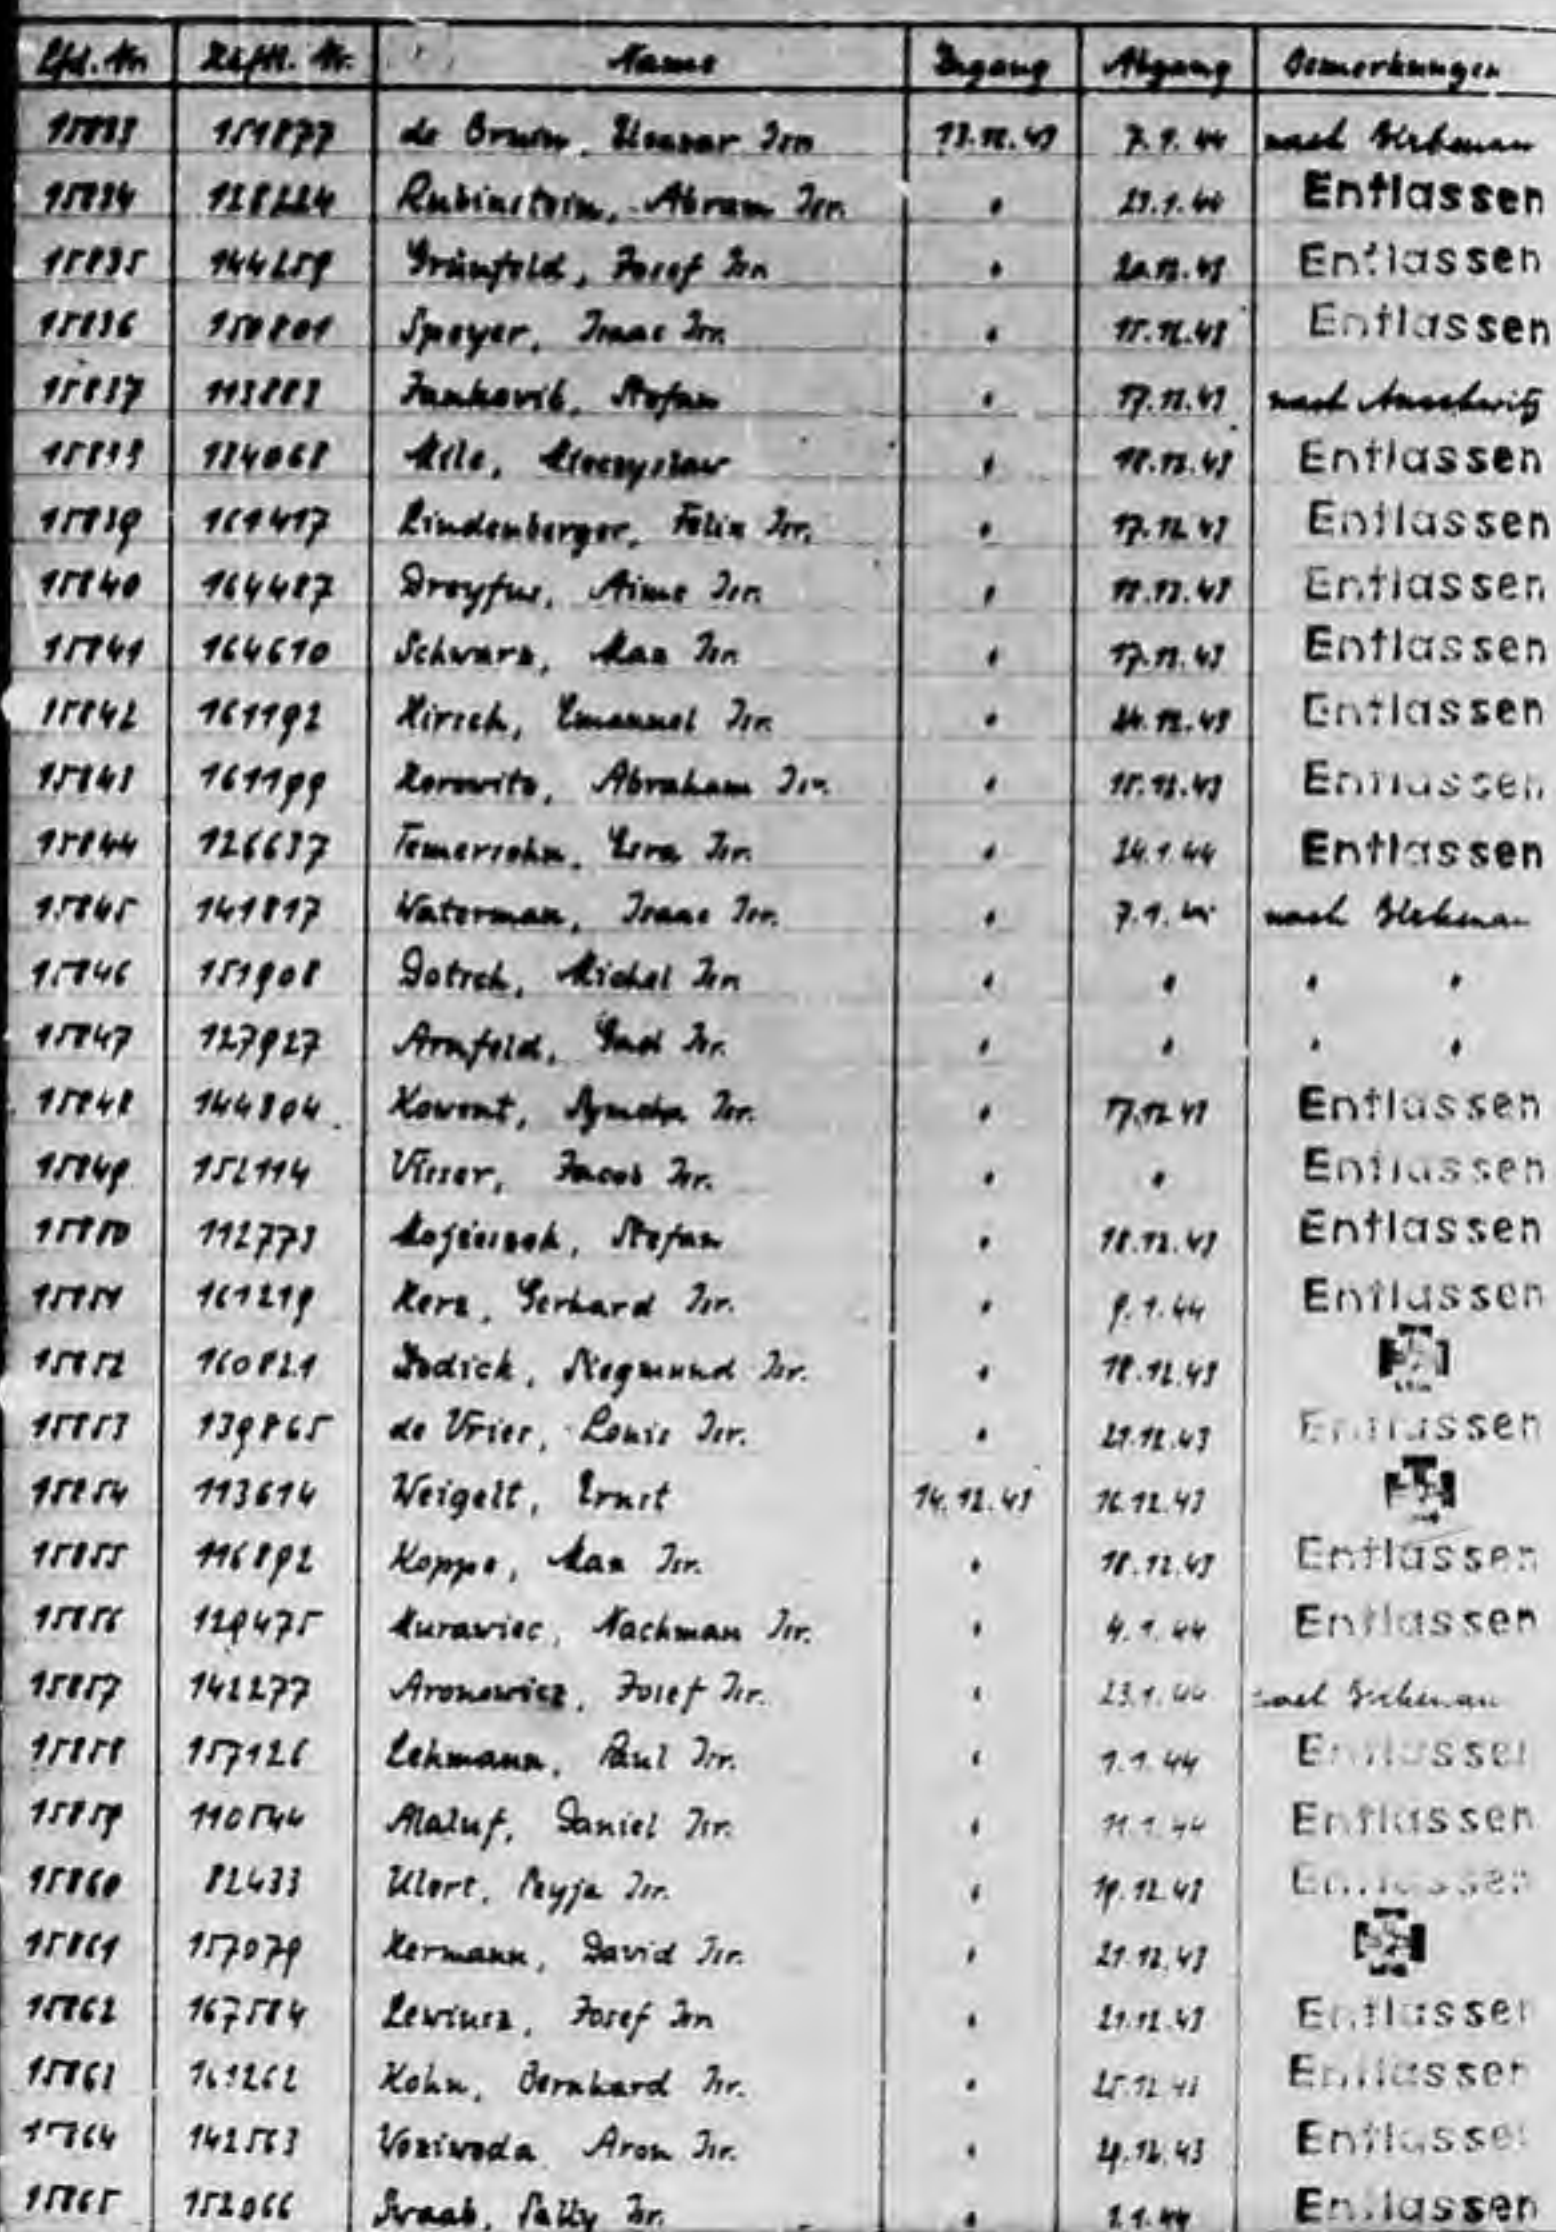 Lfd. Nr. Häftl. Nr. Name Zugang Abgang Bemerkungen
15833 151877 de Bruin, Eleazar Isr. 13.12.43 7.1.44 nach Birkenau
15834 128224 Rubinstein, Abram Isr. " 23.1.44 Entlassen
15835 144259 Grünfeld, Josef Isr. " 20.12.43 Entlassen
15836 150801 Speyer, Isaac Isr. " 15.12.43 Entlassen
15837 113883 Stefan " 17.12.43 nach Auschwitz
15838 184068 Mieczyslaw " 18.12.43 Entlassen
15839 161417 Lindenberger, Felix Isr. " 17.12.43 Entlassen
15840 164487 Dreyfus, Aime Isr. " 18.12.43 Entlassen
15841 164610 Schwarz, Max Isr. " 17.12.43 Entlassen
15842 161192 Hirsch, Emanuel Isr. " 24.12.43 Entlassen
15843 161199 Horowitz, Abraham Isr. " 15.12.43 Entlassen
15844 126637 Temersohn, Esra Isr. " 24.1.44 Entlassen
15845 141817 Waterman, Isaac Isr. " 7.1.44 nach Birkenau
15846 151908 Dotsch, Michel Isr. " " " "
15847 127927 Arnfeld, Isr. " " " "
15848 144804 Kowent, Symcha Isr. " 17.12.43 Entlassen
15849 152114 Visser, Jacob Isr. " " Entlassen
15850 112773 Stefan " 18.12.43 Entlassen
15851 161219 Herz, Gerhard Isr. " 9.1.44 Entlassen
15852 160821 Dodick, Siegmund Isr. " 18.12.43
15853 139865 de Vries, Louis Isr. " 21.12.43 Entlassen
15854 113614 Weigelt, Ernst 14.12.43 16.12.43
15855 116892 Koppe, Max Isr. " 18.12.43 Entlassen
15856 129475 Murawiec, Nachman Isr. " 4.1.44 Entlassen
15857 142277 Aronowicz, Josef Isr. " 23.1.44 nach Birkenau
15858 157126 Lehmann, Paul Isr. " 1.1.44 Entlassen
15859 110544 Maluf, Daniel Isr. " 11.1.44 Entlassen
15860 82433 Isr. " 19.12.43 Entlassen
15861 157079 Hermann, David Isr. " 21.12.43
15862 167584 Lewiusz, Josef Isr. " 21.12.43 Entlassen
15863 161262 Kohn, Bernhard Isr. " 25.12.43 Entlassen
15864 142563 Woziwoda Aron Isr. " 29.12.43 Entlassen
15865 152066 Swaab, Sally Isr. " 2.1.44 Entlassen